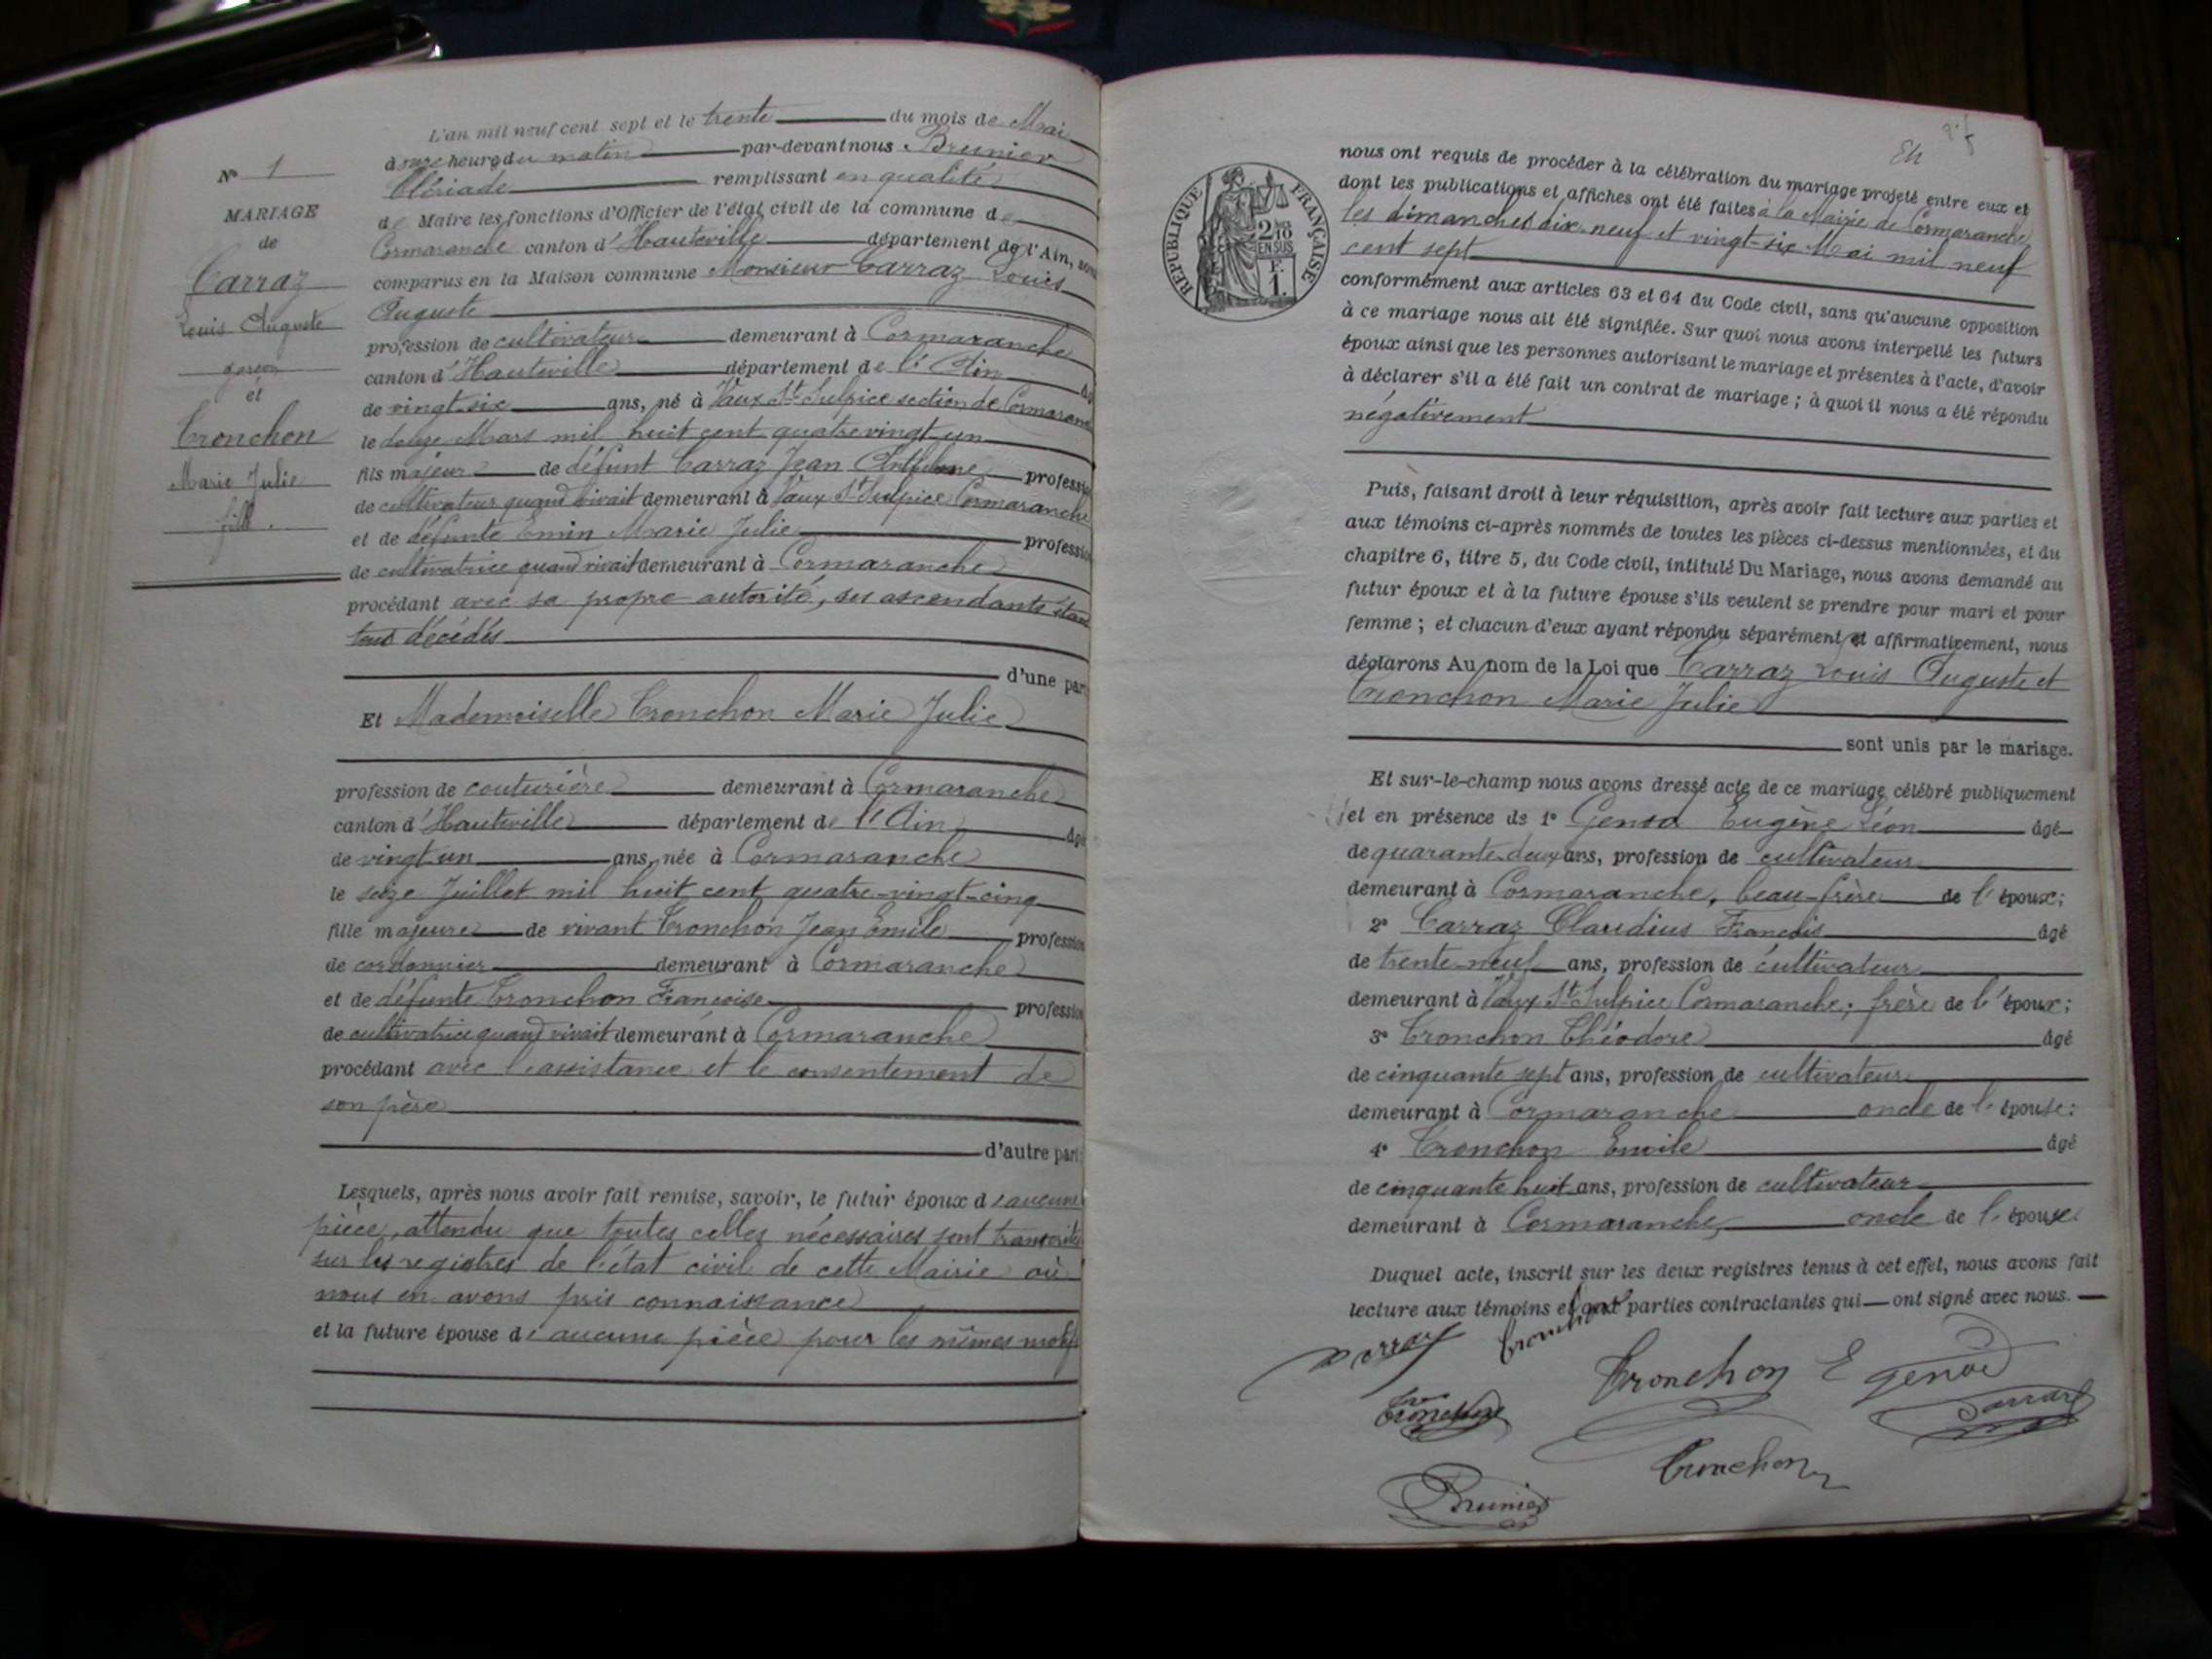 N° 1
MARIAGE
de
Carraz
Louis Auguste
garçon
et
Tronchon
Marie Julie
fille.
L'an mil neuf cent sept et le trente du mois de Mai
à onze heures du matin par-devant nous Brunier
Clériade remplissant en qualité
de Maire les fonctions d'Officier de l'état civil de la commune de
Cormaranche canton d'Hauteville département de l'Ain, sont
comparus en la Maison commune Monsieur Carraz Louis
Auguste
profession de cultivateur demeurant à Cormaranche
canton d'Hauteville département de l'Ain âg
de vingt-six ans, né à Vaux St Sulpice section de Cormaranche
le douze Mars mil huit cent quatre vingt un
fils majeur de défunt Carraz Jean Anthelme profession
de cultivateur quand vivait demeurant à Vaux St Sulpice Cormaranche
et de défunte Emin Marie Julie profession
de cultivatrice quand vivait demeurant à Cormaranche
procédant avec sa propre autorité, ses ascendants étant
tous décédés
d'une part
Et Mademoiselle Tronchon Marie Julie
profession de couturière demeurant à Cormaranche
canton d'Hauteville département de l'Ain âgé
de vingt un ans, née à Cormaranche
le seize Juillet mil huit cent quatre-vingt-cinq
fille majeure de vivant Tronchon Jean Emile profession
de cordonnier demeurant à Cormaranche
et de défunte Tronchon Françoise profession
de cultivatrice quand vivait demeurant à Cormaranche
procédant avec l'assistance et le consentement de
son père
d'autre part
Lesquels, après nous avoir fait remise, savoir, le futur époux d'aucune
pièce, attendu que toutes celles nécessaires sont transcrites
sur les registres de l'état civil de cette Mairie où
nous en avons pris connaissance
et la future épouse d'aucune pièce pour les mêmes motifs
REPUBLIQUE FRANÇAISE
2/10 EN SUS
F. 1.
nous ont requis de procéder à la célébration du mariage projeté entre eux et
dont les publications et affiches ont été faites à la Mairie de Cormaranche
les dimanches dix-neuf et vingt-six Mai mil neuf
cent sept
conformément aux articles 63 et 64 du Code civil, sans qu'aucune opposition
à ce mariage nous ait été signifiée. Sur quoi nous avons interpellé les futurs
époux ainsi que les personnes autorisant le mariage et présentes à l'acte, d'avoir
à déclarer s'il a été fait un contrat de mariage ; à quoi il nous a été répondu
négativement
Puis, faisant droit à leur réquisition, après avoir fait lecture aux parties et
aux témoins ci-après nommés de toutes les pièces ci-dessus mentionnées, et du
chapitre 6, titre 5, du Code civil, intitulé Du Mariage, nous avons demandé au
futur époux et à la future épouse s'ils veulent se prendre pour mari et pour
femme ; et chacun d'eux ayant répondu séparément et affirmativement, nous
déclarons Au nom de la Loi que Carraz Louis Auguste et
Tronchon Marie Julie
sont unis par le mariage.
Et sur-le-champ nous avons dressé acte de ce mariage célébré publiquement
et en présence de 1° Genod Eugène Léon âgé
de quarante-deux ans, profession de cultivateur
demeurant à Cormaranche, beau-frère de l'épouse;
2° Carraz Claudius François âgé
de trente-neuf ans, profession de cultivateur
demeurant à Vaux St Sulpice Cormaranche; frère de l'époux;
3° Tronchon Théodore âgé
de cinquante sept ans, profession de cultivateur
demeurant à Cormaranche oncle de l'épouse;
4° Tronchon Emile âgé
de cinquante huit ans, profession de cultivateur
demeurant à Cormaranche, oncle de l'épouse.
Duquel acte, inscrit sur les deux registres tenus à cet effet, nous avons fait
lecture aux témoins et aux parties contractantes qui ont signé avec nous.
Carraz Tronchon
Tronchon E Genod
Tronchon Carraz
Tronchon
Brunier